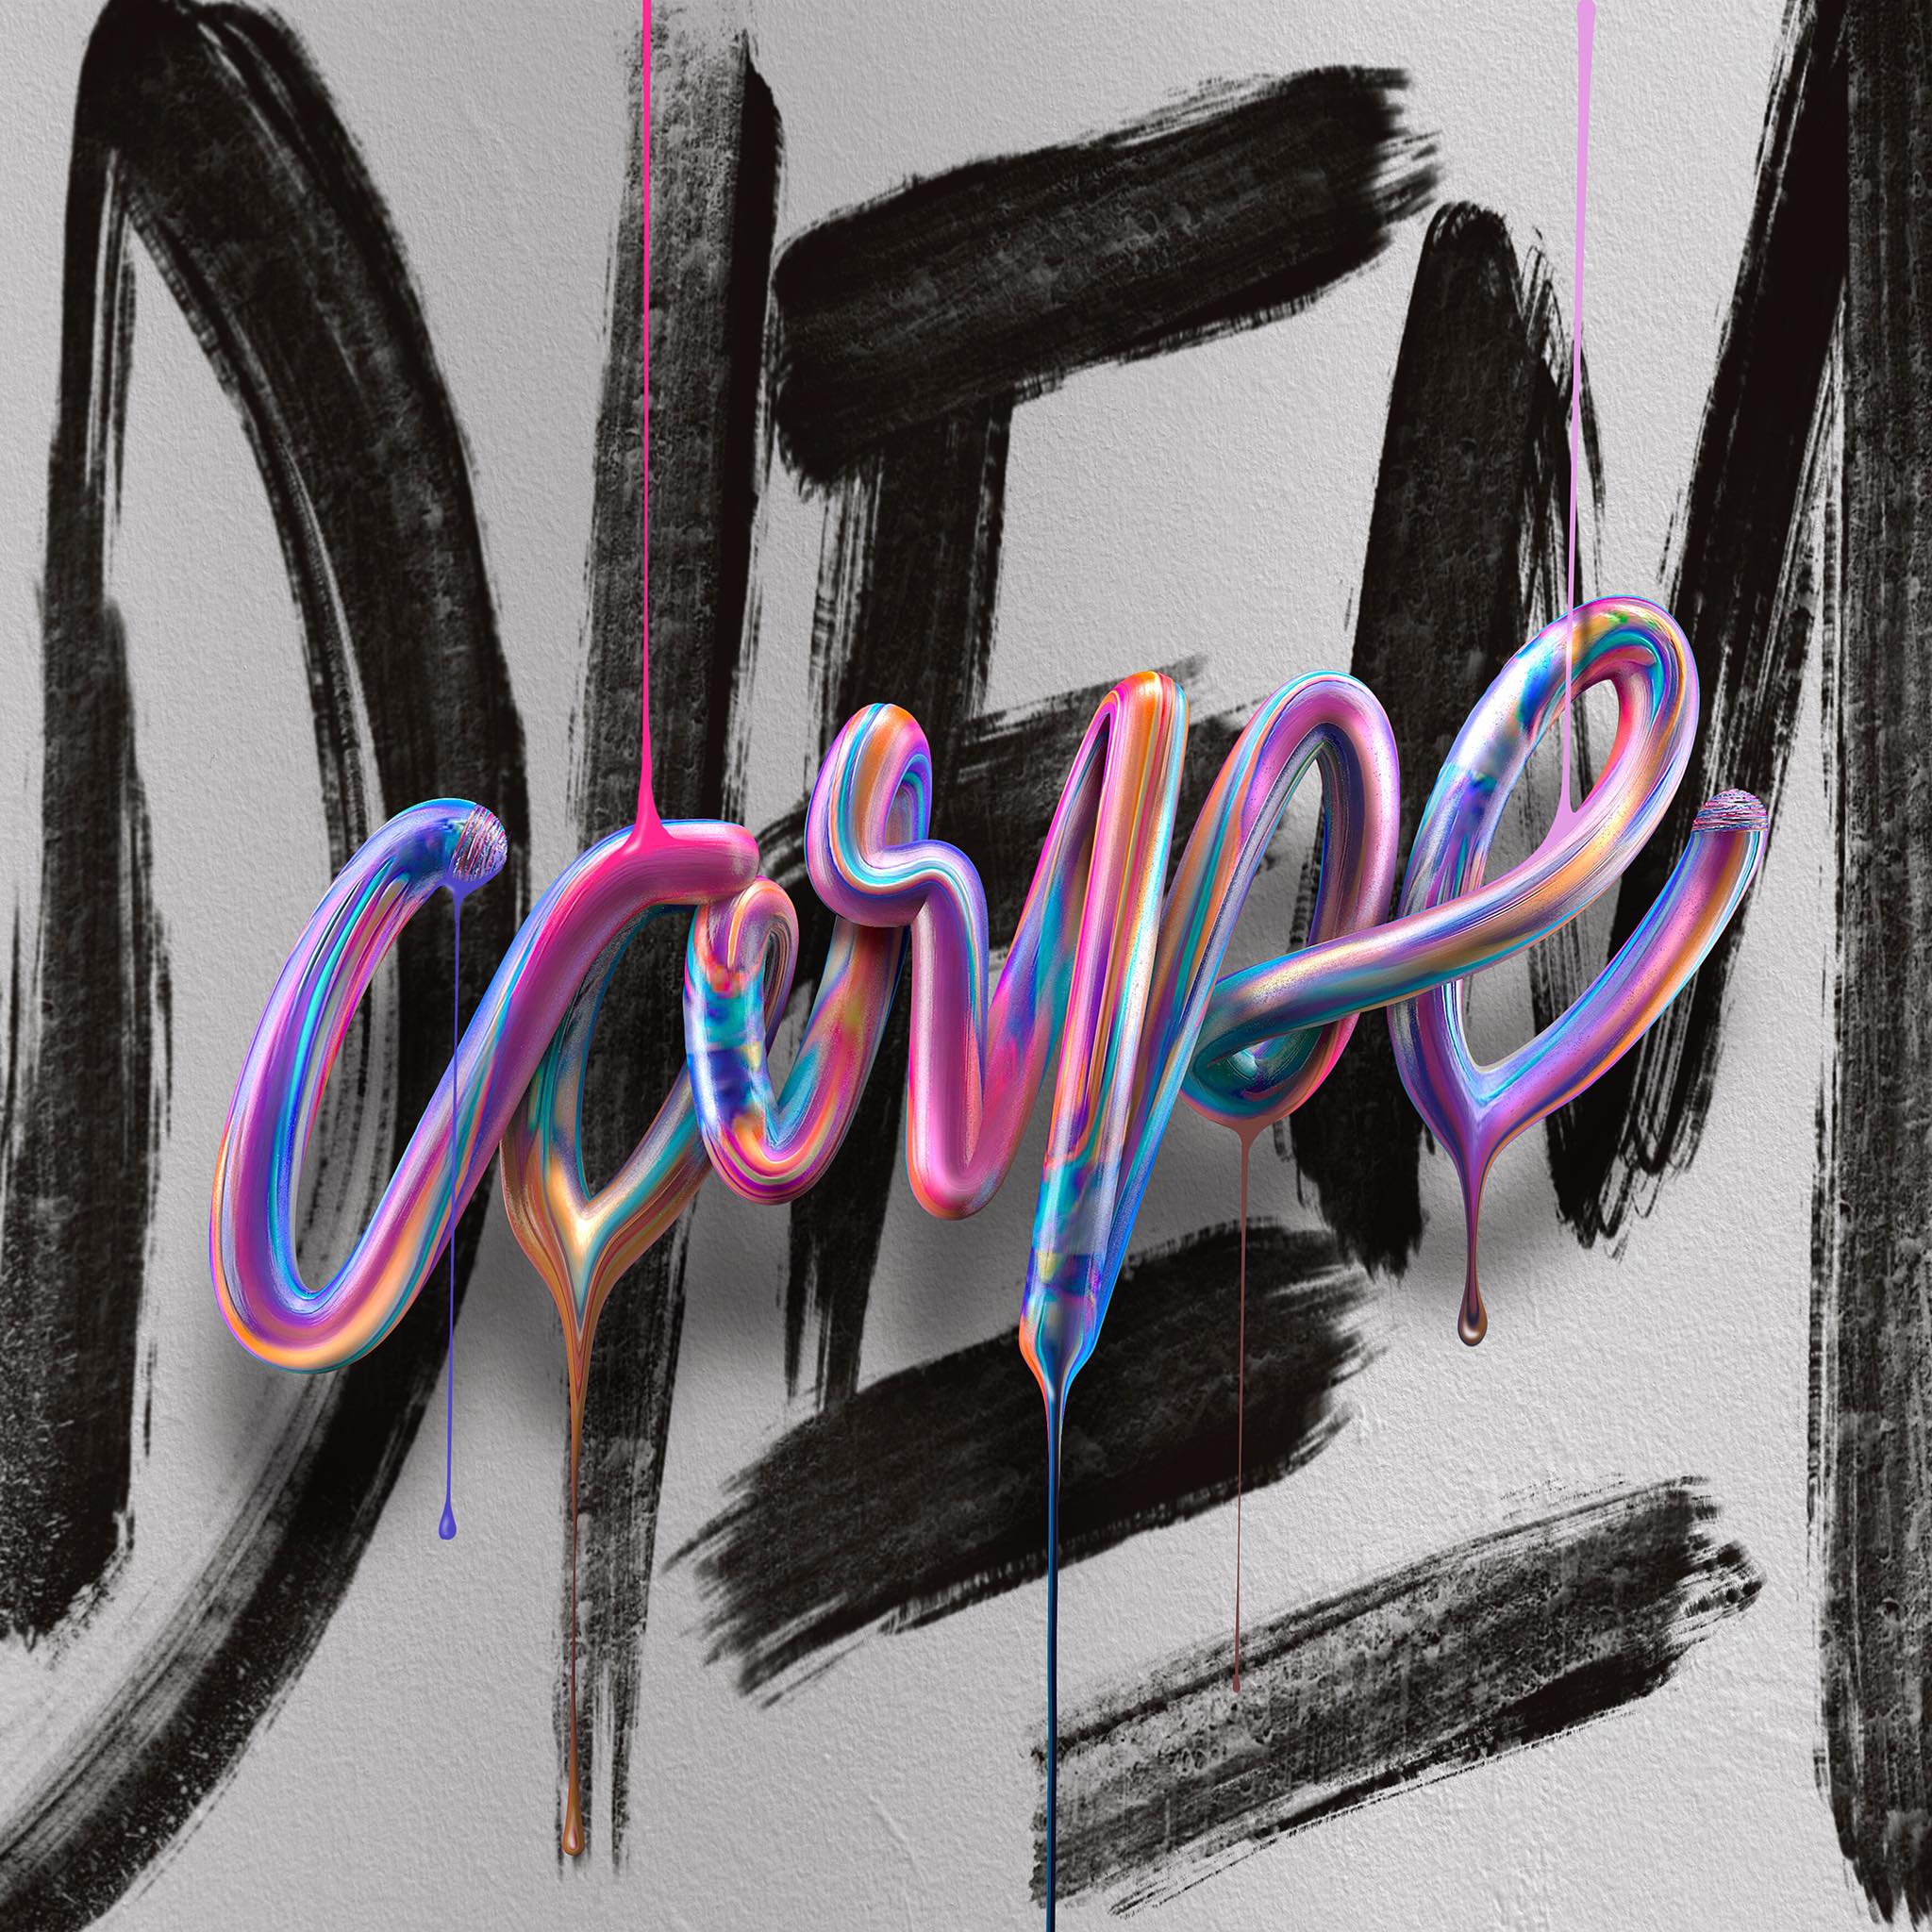 carpe
DIEM